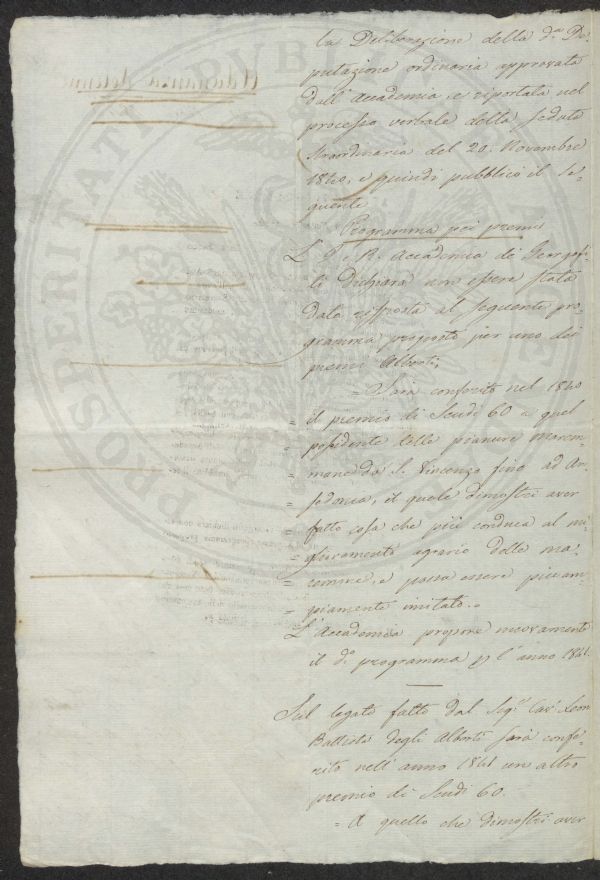 la Deliberazione della d.ª De-
putazione ordinaria approvata
dall'Accademia e riportata nel
processo verbale della seduta
straordinaria del 20. Novembre
1840, e quindi pubblicò il se-
guente
Programma pei premi
L'I. e R. Accademia dei Georgofi-
li dichiara non essere stata
data risposta al seguente pro-
gramma proposto per uno dei
premi Alberti,
Sarà conferito nel 1840
il premio di Scudi 60 a quel
= possidente delle pianure marem-
= mane da S. Vincenzo fino ad An-
= sedonia, il quale dimostri aver
= fatto cosa che più conduca al mi-
= glioramento agrario delle ma-
= remme, e possa essere più am-
= piamente imitato.
L'Accademia propone nuovamente
il d.º programma p l'anno 1841.
Sul legato fatto dal Sig.r Cav. Leon
Battista degli Alberti sarà confe-
rito nell'anno 1841 un altro
premio di Scudi 60.
= A quello che dimostri aver
PROSPERITATI PVBLICAE